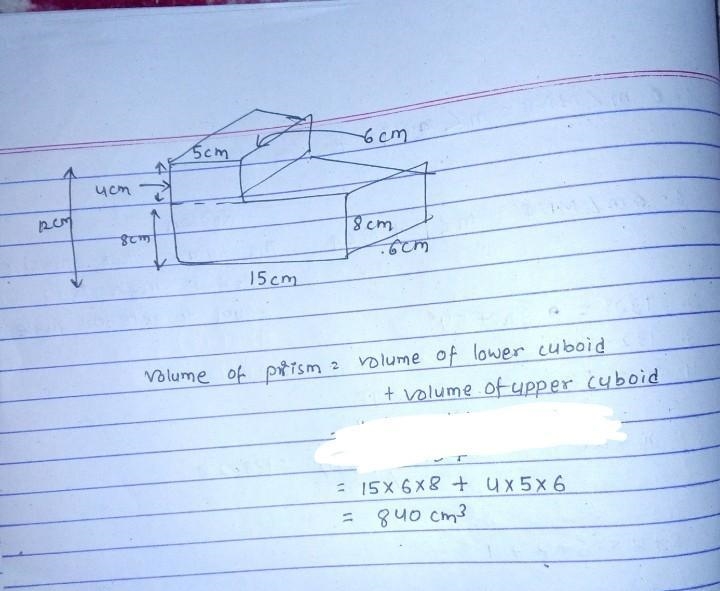 5cm
6cm
4cm
12cm
8cm
8cm
6cm
15cm
Volume of prism = volume of lower cuboid
+ volume of upper cuboid
= 15×6×8 + 4×5×6
= 840 cm³